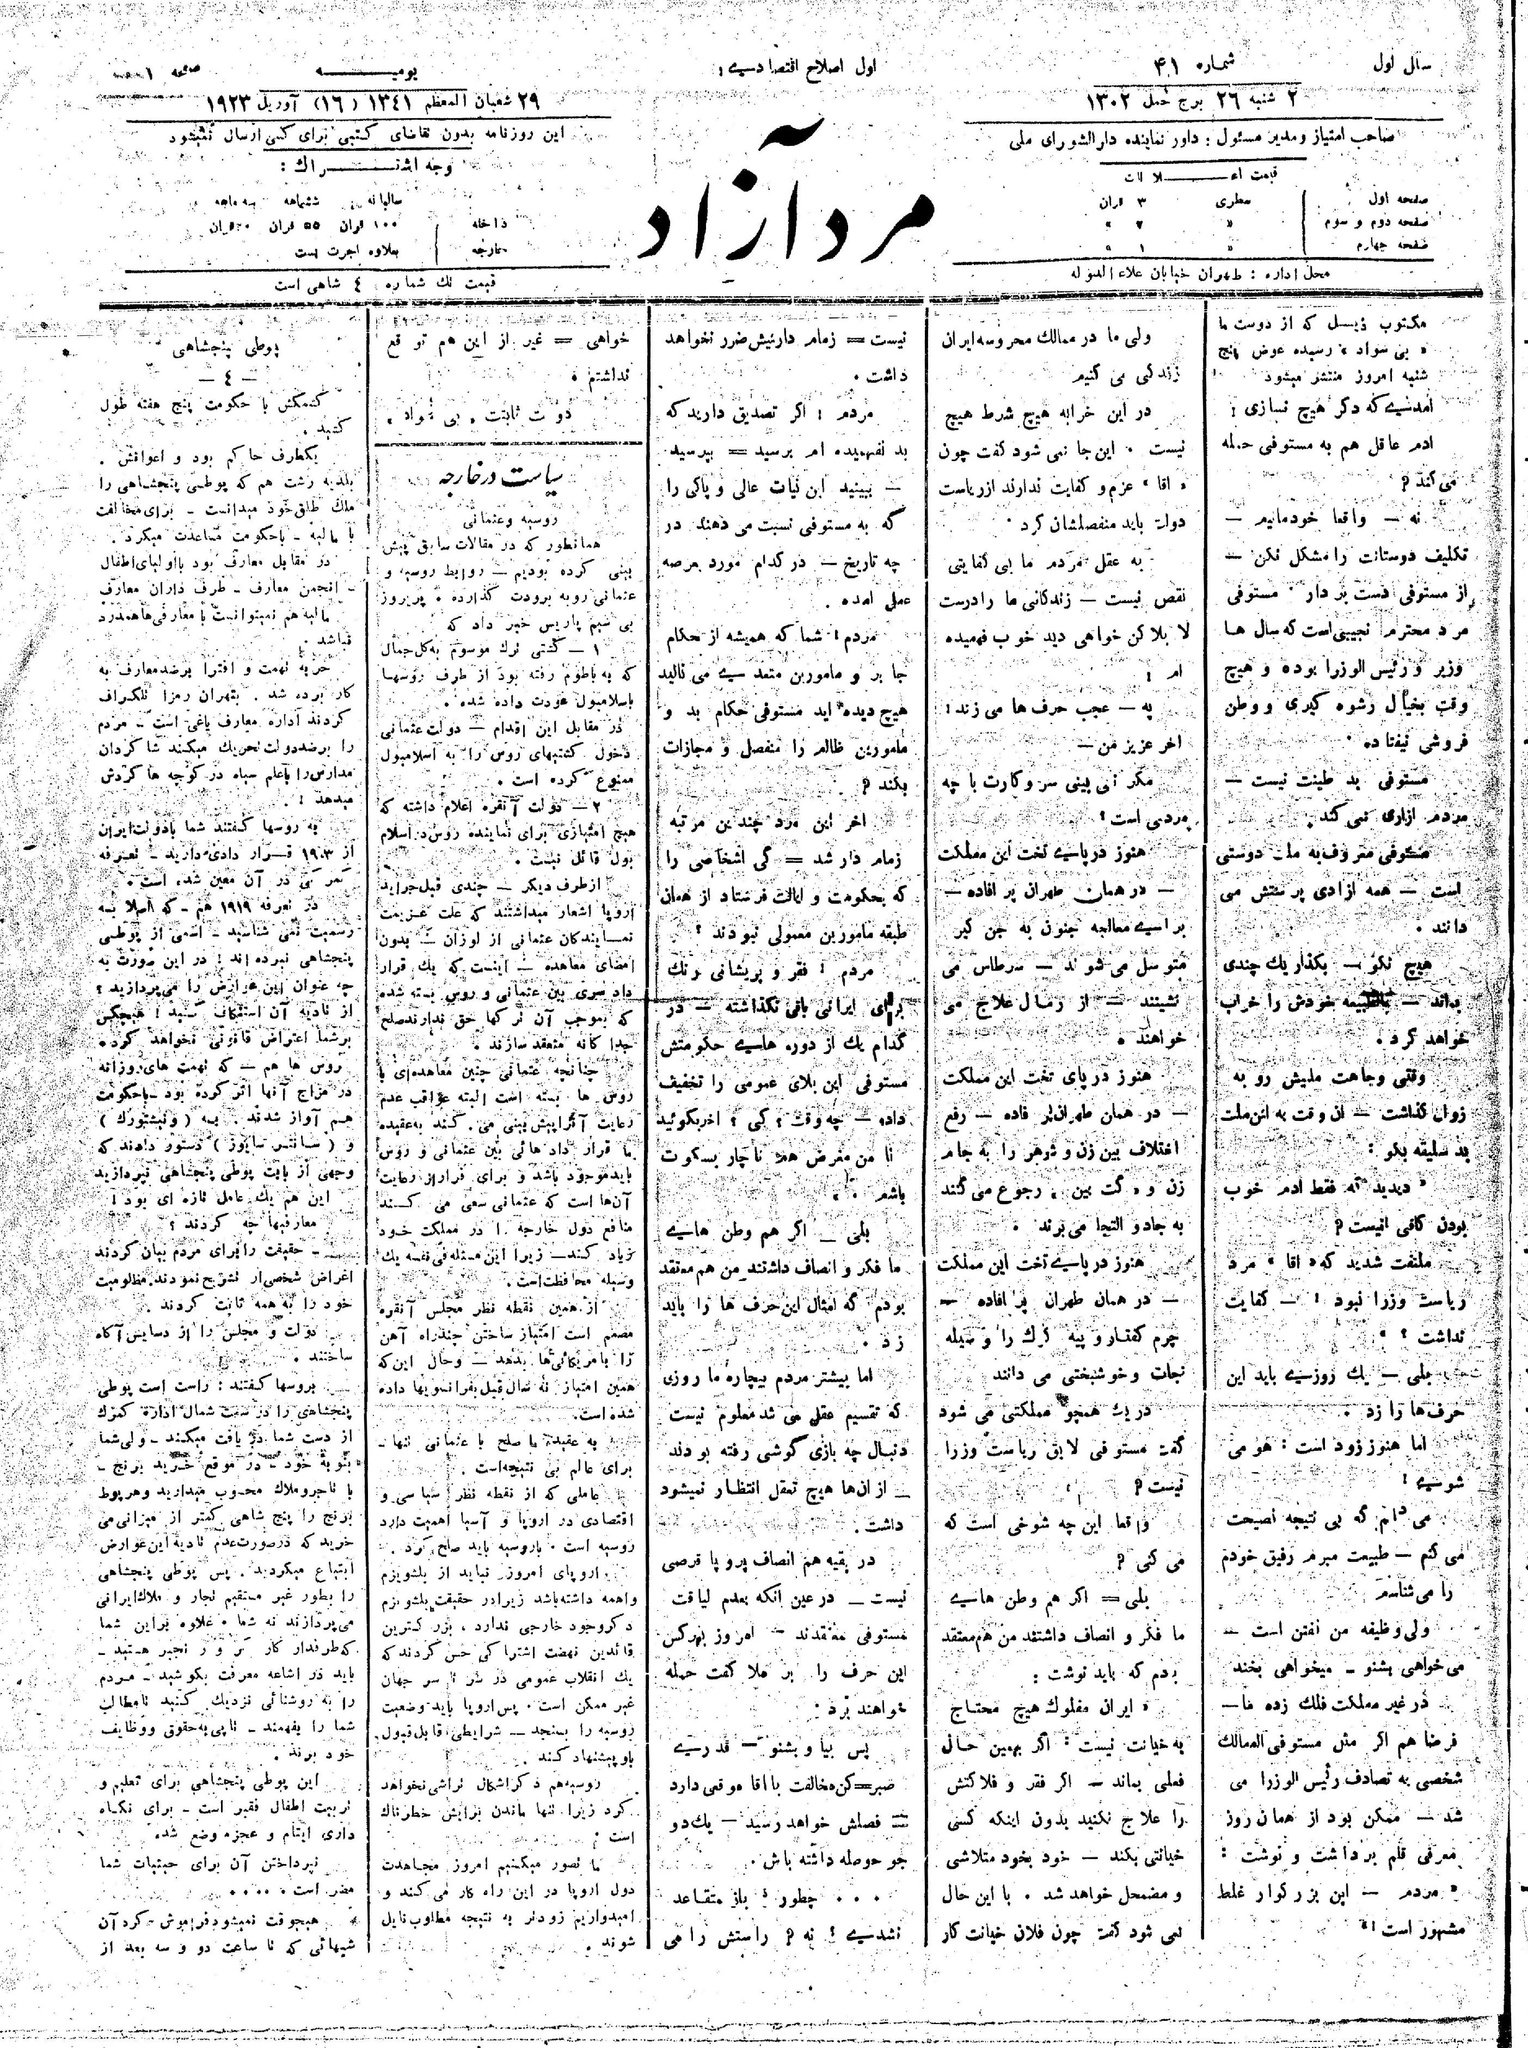 سال اول
شماره ۴۱
اول اصلاح اقتصادی!
یومیه
صفحه ۱
۲ شنبه ۲۶ برج حمل ۱۳۰۲
۲۹ شعبان المعظم ۱۳۴۱ (۱۶) آوریل ۱۹۲۳
صاحب امتیاز و مدیر مسئول : داور نماینده دارالشورای ملی
قیمت اعلانات
صفحه اول سطری ۳ قران
صفحه دوم و سوم » ۲ »
صفحه چهارم » ۱ »
محل اداره : طهران خیابان علاء الدوله
مرد آزاد
این روزنامه بدون تقاضای کتبی برای کسی ارسال نمیشود
وجه اشتراك :
سالیانه ششماهه سه ماهه
داخله ۱۰۰ قران ۵۵ قران ۳۰ قران
خارجه بعلاوه اجرت پست
قیمت تك شماره ٤ شاهی است
مکتوب ذیل که از دوست ما
« بی سواد » رسیده عوض پنج
شنبه امروز منتشر میشود
امدی که دگر هیچ نسازی !
ادم عاقل هم به مستوفی حمله
می کند ؟
نه — واقعا خودمانیم —
تکلیف دوستانت را مشکل نکن —
از مستوفی دست بردار . مستوفی
مرد محترم نجیبی است که سال ها
وزیر و رئیس الوزرا بوده و هیچ
وقت بخیال رشوه گیری و وطن
فروشی نیفتاده .
مستوفی بد طینت نیست —
مردم ازاری نمی کند .
مستوفی معروف به ملت دوستی
است — همه ازادی پرستش می
دانند .
هیچ نگو — بگذار یك چندی
بماند — بالطبیعه خودش را خراب
خواهد کرد .
وقتی وجاهت ملیش رو به
زوال گذاشت — ان وقت به این ملت
بد سلیقه بگو :
« دیدید که فقط ادم خوب
بودن کافی نیست ؟
ملتفت شدید که « اقا » مرد
ریاست وزرا نبود ! — کفایت
نداشت ؟ »
بلی — یك روزی باید این
حرف ها را زد .
اما هنوز زود است : هو می
شوی !
می دانم که بی نتیجه نصیحت
می کنم — طبیعت مبرم رفیق خودم
را می شناسم
ولی وظیفه من گفتن است —
می خواهی بشنو — میخواهی بخند
در غیر مملکت فلك زده ما —
فرضا هم اگر مثل مستوفی الممالك
شخصی به تصادف رئیس الوزرا می
شد — ممکن بود از همان روز
معرفی قلم برداشت و نوشت :
« مردم — این بزرگوار غلط
مشهور است ! »
ولی ما در ممالك محروسه ایران
زندگی می کنیم
در این خرابه هیچ شرط هیچ
نیست . این جا نمی شود گفت چون
« اقا » عزم و کفایت ندارند از ریاست
دولت باید منفصلشان کرد .
به عقل مردم ما بی کفایتی
نقص نیست — زندگانی ما را درست
لا بلا کن خواهی دید خوب فهمیده
ام !
په — عجب حرف ها می زند !
اخر عزیز من —
مگر نمی بینی سر و کارت با چه
مردمی است ؟
هنوز در پای تخت این مملکت
— در همان طهران پر افاده —
برای معالجه جنون به جن گیر
متوسل می شوند — سرطاس می
نشینند — از رمال علاج می
خواهند .
هنوز در پای تخت این مملکت
— در همان طهران پر افاده — رفع
اختلاف بین زن و شوهر را به جام
زن و « کت بین » رجوع می کنند
به جادو التجا می برند .
هنوز در پای تخت این مملکت
— در همان طهران پر افاده —
چرم کفتار و پیه گرك را وسیله
نجات و خوشبختی می دانند
در یك همچو مملکتی می شود
گفت مستوفی لایق ریاست وزرا
نیست ؟
واقعا این چه شوخی است که
می کنی ؟
بلی = اگر هم وطن های
ما فکر و انصاف داشتند من هم معتقد
بدم که باید نوشت :
« ایران مفلوك هیچ محتاج
به خیانت نیست : اگر بهمین حال
فعلی بماند — اگر فقر و فلاکتش
را علاج نکنید بدون اینکه کسی
خیانتی بکند — خود بخود متلاشی
و مضمحل خواهد شد . با این حال
نمی شود گفت چون فلان خیانت کار
نیست = زمام داریش ضرر نخواهد
داشت .
مردم ! اگر تصدیق دارید که
بد نفهمیده ام برسید = بپرسید
— ببینید این نیات عالی و پاکی را
که به مستوفی نسبت می دهند در
چه تاریخ — در کدام مورد بعرصه
عملی امده .
مردم ! شما که همیشه از حکام
جابر و مامورین متعدی می نالید
هیچ دیده اید مستوفی حکام بد و
مامورین ظالم را منفصل و مجازات
بکند ؟
اخر این مرد چندین مرتبه
زمام دار شد = کی اشخاصی را
که بحکومت و ایالت فرستاد از همان
طبقه مامورین معمولی نبودند ؟
مردم ! فقر و پریشانی رنك
بروی ایرانی باقی نگذاشته — در
کدام یك از دوره های حکومتش
مستوفی این بلای عمومی را تخفیف
داده — چه وقت ؟ کی ؟ اخر بگوئید
تا من مغرض هم ناچار بسکوت
باشم . »
بلی — اگر هم وطن های
ما فکر و انصاف داشتند من هم معتقد
بودم که امثال این حرف ها را باید
زد .
اما بیشتر مردم بیچاره ما روزی
که تقسیم عقل می شد معلوم نیست
دنبال چه بازی گوشی رفته بودند
— از ان ها هیچ تعقل انتظار نمیشود
داشت .
در بقیه هم انصاف پر و پا قرصی
نیست — در عین آنکه بعدم لیاقت
مستوفی معتقدند — امروز بهرکس
این حرف را بر ملا گفت حمله
خواهند برد :
پس بیا و بشنو — قدری
صبر = کن مخالفت با اقا موقعی دارد
= فصلش خواهد رسید — یك دو
جو حوصله داشته باش .
. . . چطور ؟ باز متقاعد
نشدی ! نه ؟ راستش را می
خواهی = غیر از این هم توقع
نداشتم .
دوست ثابتت . بی سواد .
سیاست در خارجه
روسیه و عثمانی
همانطور که در مقالات سابق پیش
بینی کرده بودیم — روابط روسیه و
عثمانی رو به برودت گذارده . پریروز
بی سیم پاریس خبر داد که
۱ — کشتی ترك موسوم به کل جمال
که به باطوم رفته بود از طرف روسها
باسلامبول عودت داده شده .
در مقابل این اقدام — دولت عثمانی
دخول کشتیهای روس را به اسلامبول
ممنوع کرده است .
۲ — دولت آنقره اعلام داشته که
هیچ امتیازی برای نماینده روس در اسلام
بول قائل نیست .
از طرف دیگر — چندی قبل جراید
اروپا اشعار میداشتند که علت عزیمت
نمایندگان عثمانی از لوزان — بدون
امضای معاهده — اینست که یك قرار
داد سری بین عثمانی و روس بسته شده
که بموجب آن ترکها حق ندارند صلح
جداگانه منعقد سازند .
چنانچه عثمانی چنین معاهده‌ای با
روس ها بسته است البته عواقب عدم
رعایت آنرا پیش بینی می کند به عقیده
ما قرار دادهائی بین عثمانی و روس
باید موجود باشد و برای فرار از رعایت
آن ها است که عثمانی سعی می کند
منافع دول خارجه را در مملکت خود
زیاد کند — زیرا این مسئله فی نفسه یك
وسیله محافظت است .
از همین نقطه نظر مجلس آنقره
مصمم است امتیاز ساختن چند راه آهن
را بامریکائی‌ها بدهد — و حال این که
همین امتیاز نه سال قبل بفرانسویها داده
شده است .
به عقیده ما صلح با عثمانی تنها —
برای عالم بی نتیجه است .
عاملی که از نقطه نظر سیاسی و
اقتصادی در اروپا و آسیا اهمیت دارد
روسیه است . با روسیه باید صلح کرد .
اروپای امروز نباید از بلشویزم
واهمه داشته باشد زیرا در حقیقت بلشویزم
دگر وجود خارجی ندارد ، بزرگترین
قائدین نهضت اشتراکی حس کردند که
یك انقلاب عمومی در سرتاسر جهان
غیر ممکن است . پس اروپا باید وضعیت
روسیه را بسنجد — شرایطی قابل قبول
باو پیشنهاد کند .
روسیه هم دگر اشکال تراشی نخواهد
کرد زیرا تنها ماندن برایش خطرناك
است !
ما تصور میکنیم امروز مجاهدت
دول اروپا در این راه کار می کند و
امیدواریم زودتر به نتیجه مطلوب نایل
شوند .
پوطی پنجشاهی
— ٤ —
کشمکش با حکومت پنج هفته طول
کشید .
یکطرف حاکم بود و اعوانش .
بلدیه رشت هم که پوطی پنجشاهی را
ملك طلق خود میدانست — برای مخالفت
با مالیه — باحکومت مساعدت میکرد .
در مقابل معارف بود با اولیای اطفال
— انجمن معارف — طرف داران معارف
مالیه هم نمیتوانست با معارفی‌ها همدرد
نباشد .
حربه تهمت و افترا بر ضد معارف به
کار برده شد . بتهران رمزا تلگراف
کردند اداره معارف یاغی است — مردم
را بر ضد دولت تحریك میکند شاگردان
مدارس را با علم سیاه در کوچه ها گردش
میدهد ! .
به روسها گفتند شما با دولت ایران
از ۱۹۰۳ قرار دادی دارید — تعرفه
گمرکی در آن معین شده است .
در تعرفه ۱۹۱۹ هم — که اصلا به
رسمیت نمی شناسید — اسمی از پوطی
پنجشاهی نبرده اند ! در این صورت به
چه عنوان این عوارض را می پردازید ؟
از تادیه آن استنکاف کنید ! هیچکس
بر شما اعتراض قانونی نخواهد کرد .
روس ها هم — که تهمت های روزانه
در مزاج آنها اثر کرده بود — با حکومت
هم آواز شدند . به ( ونیشتورك )
و ( سانتر سایوز ) دستور دادند که
وجهی از بابت پوطی پنجشاهی نپردازید
این هم یك عامل تازه ای بود !
معارفیها چه کردند ؟
— حقیقت را برای مردم بیان کردند
اغراض شخصی را تشریح نمودند . مظلومیت
خود را به همه ثابت کردند .
دولت و مجلس را از دسایس آگاه
ساختند .
بروسها گفتند : راست است پوطی
پنجشاهی را در سمت شمال اداره گمرك
از دست شما دریافت میکند — ولی شما
بنوبه خود — در موقع خرید برنج —
با تاجر و ملاك محسوب میدارید و هر پوط
برنج را پنج شاهی کمتر از میزانی می
خرید که در صورت عدم تادیه این عوارض
ابتیاع میکردید . پس پوطی پنجشاهی
را بطور غیر مستقیم تجار و ملاك ایرانی
می پردازند نه شما . علاوه بر این شما
که طرفدار کارگر و رنجبر هستید —
باید در اشاعه معرفت بکوشید — مردم
را به روشنائی نزدیك کنید تا مطالب
شما را بفهمند — تا پی به حقوق و وظایف
خود برند .
این پوطی پنجشاهی برای تعلیم و
تربیت اطفال فقیر است — برای نگاه
داری ایتام و عجزه وضع شده .
نپرداختن آن برای حیثیات شما
مضر است . . . . .
هیچوقت نمیشود فراموش کرد آن
شبهائی که تا ساعت دو و سه بعد از